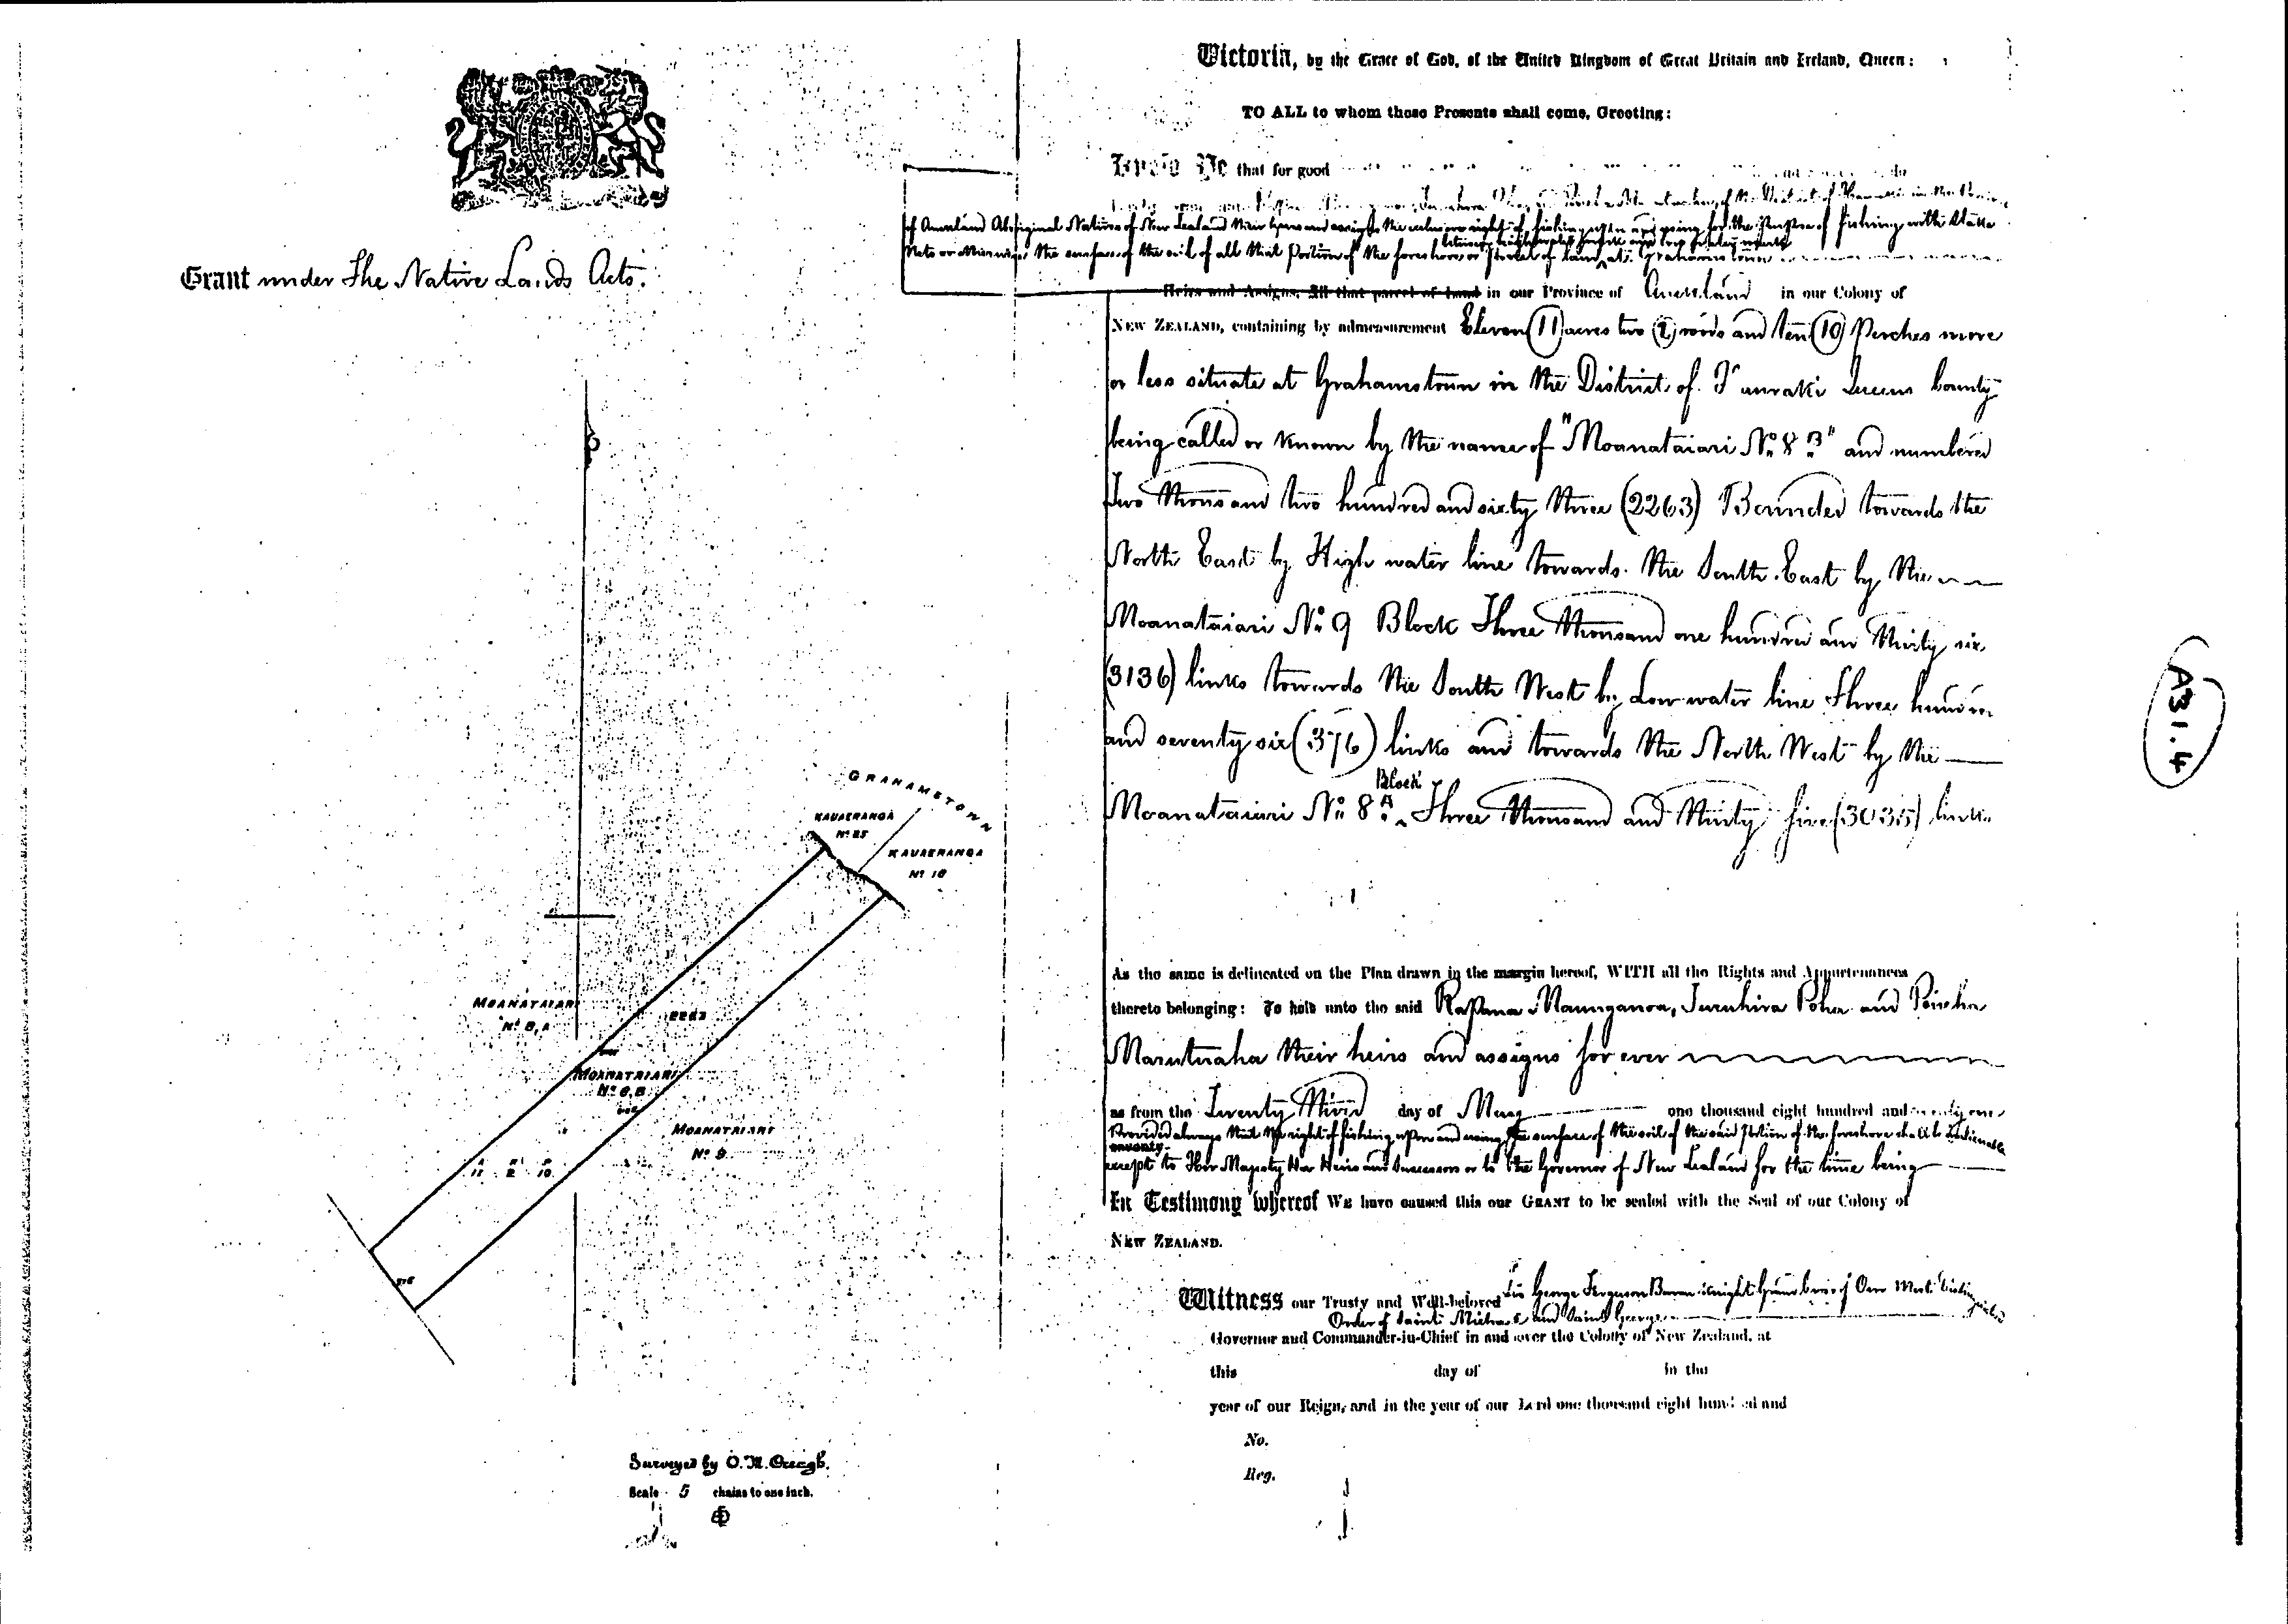 Grant under The Native Lands Acts.
GRAHAMSTOWN
KAUAERANGA
No 25
KAUAERANGA
No 10
MOANATAIARI
No 8, A
2263
MOANATAIARI
No 8, B
MOANATAIARI
No 9
A R P
11 2 10
376
Surveyed by O. M. Creagh.
Scale 5 chains to one inch.
Victoria, by the Grace of God, of the United Kingdom of Great Britain and Ireland, Queen:
TO ALL to whom these Presents shall come, Greeting:
Know Ye that for good
of the District of in the
of Auckland Aboriginal Natives of New Zealand their heirs and assigns the exclusive right of fishing upon and using for the purpose of fishing with stake
Nets or otherwise the surface of the soil of all that Portion of the foreshore or parcel of land at Grahamstown
between high water mark and low water mark
Heirs and Assigns, All that parcel of Land in our Province of Auckland in our Colony of
NEW ZEALAND, containing by admeasurement Eleven (11) acres two (2) roods and ten (10) Perches more
or less situate at Grahamstown in the District of Hauraki Queens County
being called or known by the name of "Moanataiari No 8 B" and numbered
Two thousand two hundred and sixty three (2263) Bounded towards the
North East by High water line towards the South East by the
Moanataiari No 9 Block Three thousand one hundred and thirty six
(3136) links towards the South West by Low water line Three hundred
and seventy six (376) links and towards the North West by the
Block
Moanataiari No 8 A Three thousand and thirty five (3035) links
As the same is delineated on the Plan drawn in the margin hereof, WITH all the Rights and Appurtenances
thereto belonging: To hold unto the said Rapana Maunganoa, Turuhira and
Marutuaha their heirs and assigns for ever
as from the Twenty third day of May one thousand eight hundred and seventy one
Provided always that the right of fishing upon and using the surface of the soil of the said Portion of the foreshore shall be inalienable
except to Her Majesty Her Heirs and Successors or to the Governor of New Zealand for the time being
In Testimony whereof WE have caused this our GRANT to be sealed with the Seal of our Colony of
NEW ZEALAND.
Witness our Trusty and Well-beloved Sir George Ferguson Bowen Knight Grand Cross of Our Most Distinguished
Order of Saint Michael and Saint George
Governor and Commander-in-Chief in and over the Colony of New Zealand, at
this day of in the
year of our Reign, and in the year of our Lord one thousand eight hundred and
No.
Reg.
A31.4